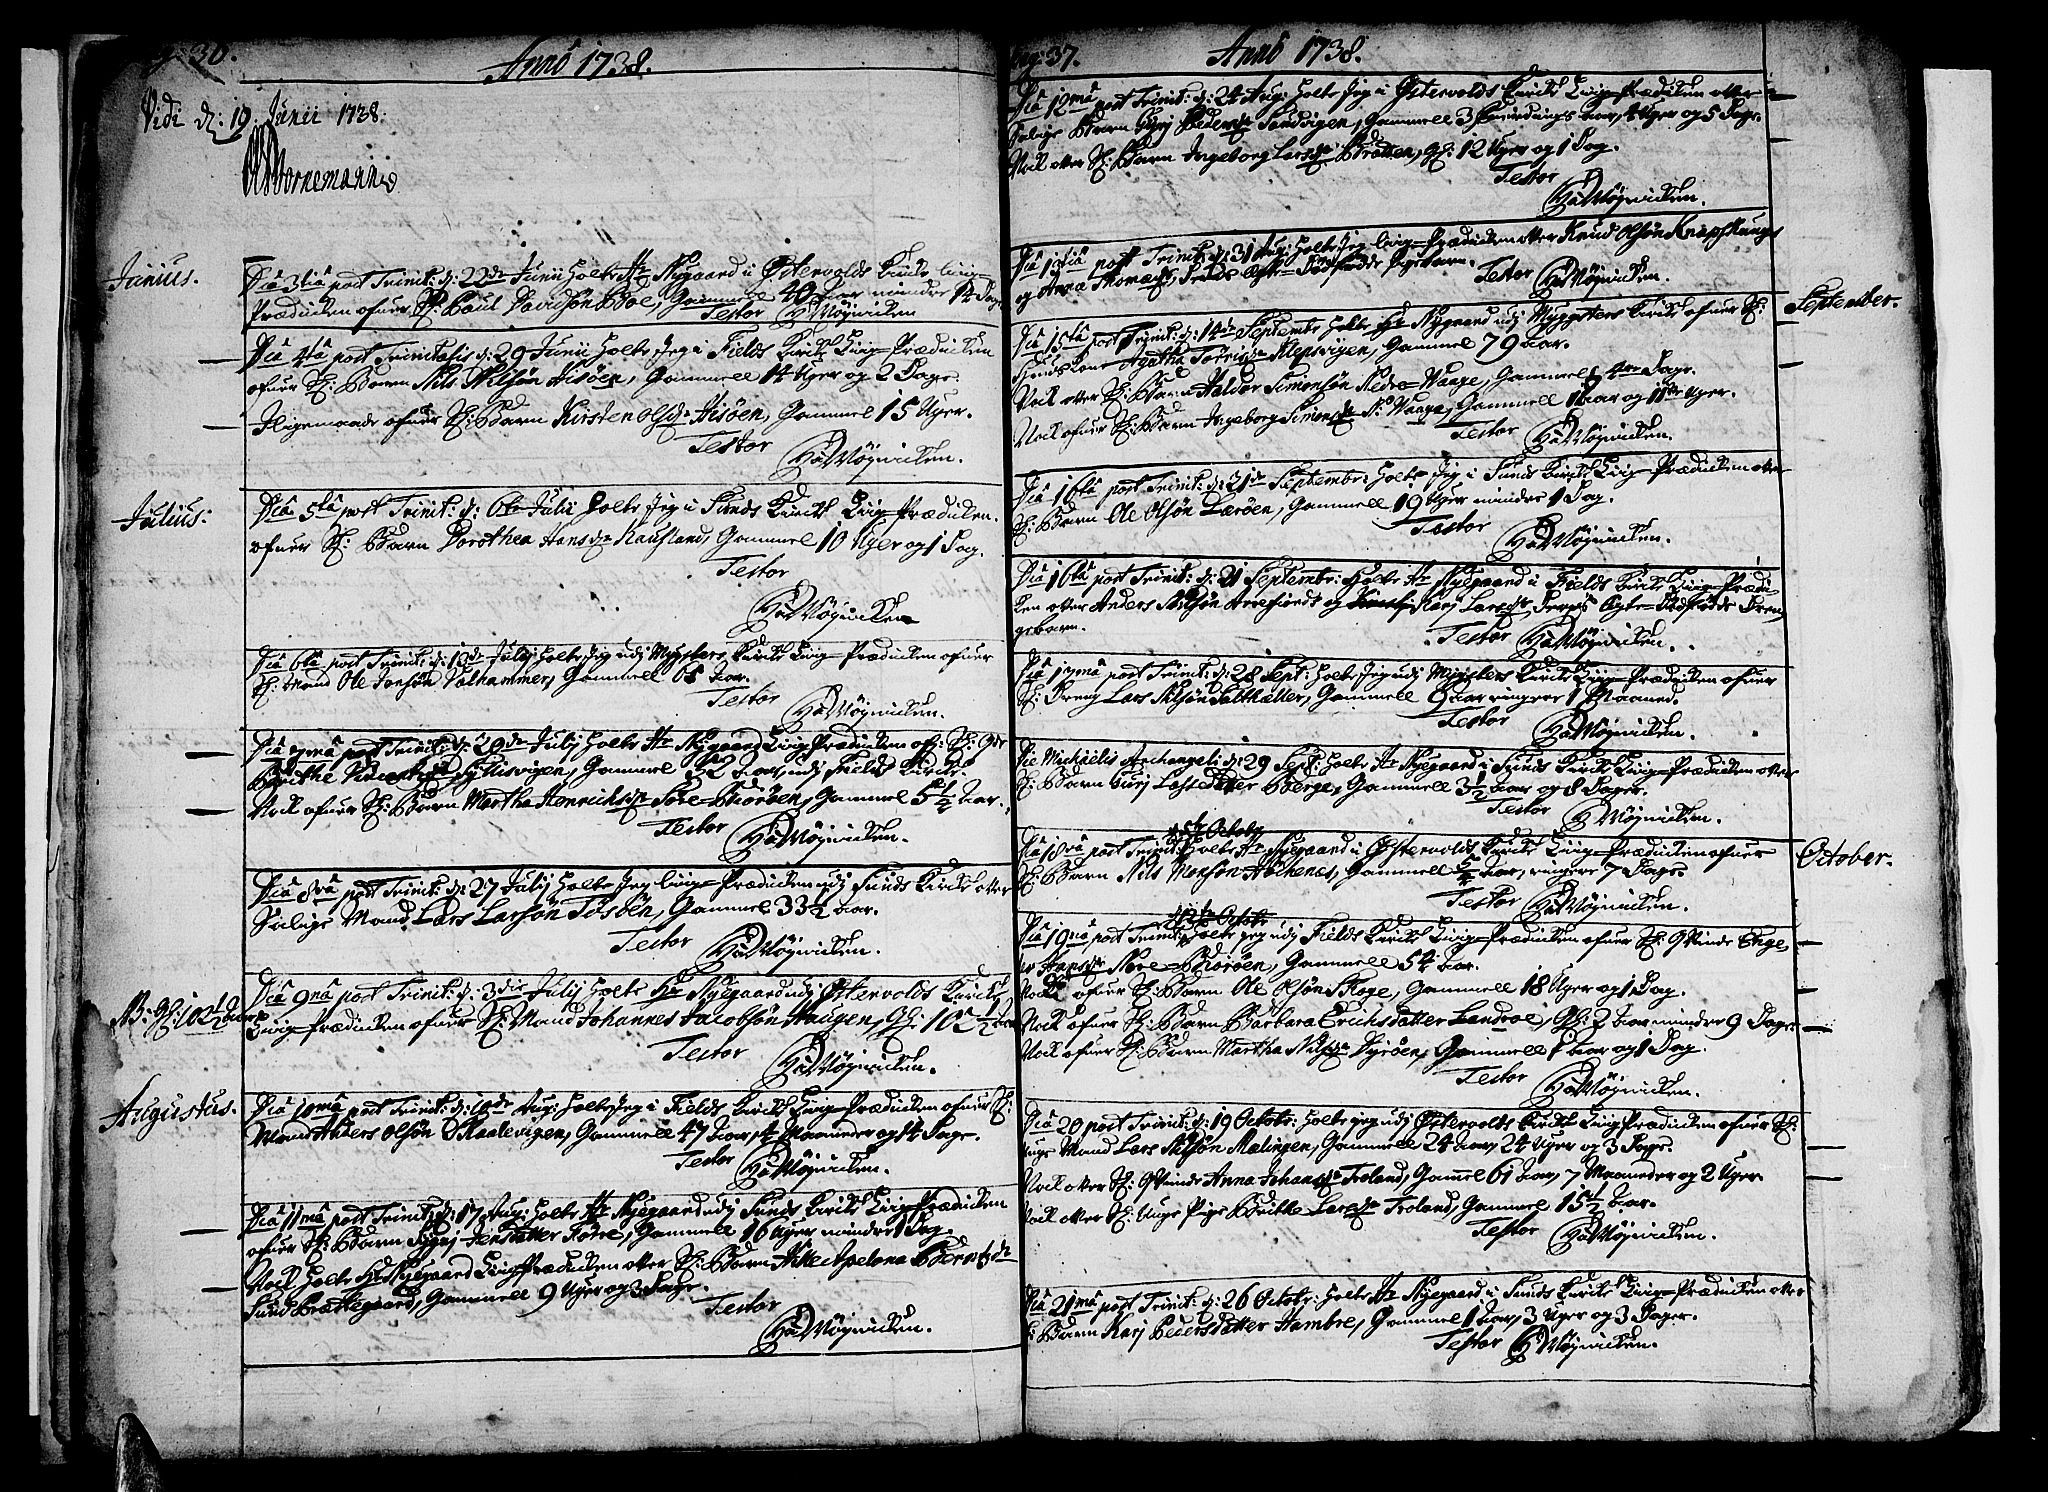 pag: 36.
Anno 1738.
Vidi d: 19 Junii 1738.
Bornemann
Junius.
Dia 3tia post Trinit: d: 22de Junii holte Hr Nygaard i Østervolds Kircke Liig-
Prædicken ofuer Sl: Poul Davidsøn Boe, Gammell 40 Aar mindre 12 Dage
Testor HMøinichen
Dia 4ta post Trinitatis d: 29 Junii holte Jeg i Fields Kircke Liig-Prædicken
ofuer Sl: Barn Nils Nilsøn Aisøen, Gammell 14 Uger og 2 Dage.
Iligemaade ofuer Sl: Barn Kirsten Olsdr Aisøen, Gammel 15 Uger.
Testor
HMøinichen.
Julius.
Dia 5ta post Trinit: d: 6te Julii holte Jeg i Sunds Kircke Liig-Prædicken
ofuer Sl: Barn Dorothea Hansdr Kausland, Gammel 10 Uger og 1 Dag.
Testor
HMøinichen
Dia 6ta post Trinit: d: 13de Julij holte Jeg udj Mygsters Kircke Liig-Prædicken ofuer
Sl: Mand Ole Jonsøn Valhammer, Gammell 68 Aar.
Testor
HMøinichen.
Dia 7ma post Trinit: d: 20de Julij holte Hr Nygaard Liig-Prædicken of: Sl:
Birthe Gammel 32 Aar, udj Fields Kircke.
Nock ofuer Sl: Barn Martha Henrichsdr Søre-Biorøen, Gammel 5 1/2 Aar.
Testor
HMøinichen.
Dia 8va post Trinit: d: 27 Julij holte Jeg Liig-Prædicken udj Sunds Kircke ofver
Salige Mand Lars Larsøn Tøsøen, Gammel 33 1/2 Aar.
Testor
HMøinichen.
NB: Gl: 102 1/2 Aar
Dia 9na post Trinit: d: 3die Julij holte Hr Nygaard udj Østervolds Kircke
Liig-Prædicken ofuer Sl: Mand Johannes Jacobsøn Haugen, Gl: 102 1/2 Aar
Testor
HMøinichen.
Augustus.
Dia 10ma post Trinit: d: 10de Aug: holte Jeg i Fields Kircke Liig-Prædicken ofuer Sl:
Mand Anders Olsøn Skaalevigen, Gammell 47 Aar, 4 Maaneder og 14 Dage.
Testor
HMøinichen.
Dia 11ma post Trinit: d: 17 Aug: holte Hr Nygaard udj Sunds Kircke Liig-Prædicken
ofuer Sl: Barn Siggej Jensdatter Førre, Gammell 16 Uger mindre 1 Dag.
Nock holte Hr Nygaard Liig-Prædicken over Sl: Barn Apelona Berentsdr
Sund Prættegaard, Gammell 9 Uger og 3 Dage.
Testor
HMøinichen.
pag: 37.
Anno 1738.
Dia 12ma post Trinit: d: 24 Aug: holte Jeg i Østervolds Kircke Liig-Prædicken ofver
Salige Barn Gurj Pedersdr Sandvigen, Gammell 3 Fierdings Aar, 4 Uger og 5 Dage.
Nock ofver Sl: Barn Ingeborg Larsdr Bratten, Gl: 12 Uger og 1 Dag.
Testor
HMøinichen.
Dia 13tia post Trinit: d: 31 Aug: holte Jeg Liig-Prædicken over Knud Olsøn Knapskougs
og Anna Thomædr, deres Ægte-Dødfødde Pigebarn.
Testor
HMøinichen.
September.
Dia 15ta post Trinit: d: 14de Septembr: holte Hr Nygaard udj Mygsters Kircke ofuer Sl:
Huus Kone Agatha Torrisdr Klepsvigen, Gammel 79 Aar.
Nock over Sl: Barn Haldor Simensøn Nedre-Waage, Gammell 4re Dage.
Nock ofuer Sl: Barn Ingeborg Simensdr N: Waage, Gammell 1 Aar og 11 Uger.
Testor
HMøinichen.
Dia 16ta post Trinit: d: 21de Septembr: holte Jeg i Sunds Kircke Liig-Prædicken over
Sl: Barn Ole Olsøn Lerøen, Gammell 19 Uger mindre 1 Dag.
Testor
HMøinichen.
Dia 16ta post Trinit: d: 21 Septembr: holte Hr Nygaard i Fields Kircke Liig-Prædi-
cken over Anders Nilsøn Arrefiords og Karj Larsdr deres Ægte-Dødfødde Dren-
gebarn.
Testor
HMøinichen.
Dia 17ma post Trinit: d: 28 Sept: holte Jeg udj Mygsters Kircke Liig-Prædicken ofuer
Sl: Dreng Lars Nilsøn Salthæller, Gammell 9 Aar ringere 1 Maaned.
Testor
HMøinichen.
Die Michaelis Archangeli d: 29 Sept: holte Hr Nygaard i Sunds Kircke Liig-Prædicken over
Sl: Barn Gurj Datter Berge, Gammell 3 1/2 Aar og 8 Dage.
Testor
HMøinichen.
October.
d: 5te Octobr
Dia 18va post Trinit: holte Hr Nygaard i Østervolds Kircke Liig-Prædicken ofuer
Sl: Barn Nils Monsøn Høchenes, Gammell 5/4 Aar, ringere 7 Dage.
Testor
HMøinichen.
d: 12te Octobr
Dia 19na post Trinit: holte Jeg udj Fields Kircke Liig-Prædicken ofuer Sl: Qvinde Inge-
Hansdr Nore-Biorøen, Gammell 54 Aar.
Nock ofuer Sl: Barn Ole Olsøn Skoge, Gammell 18 Uger og 1 Dag.
Nock ofuer Sl: Barn Barbara Erichsdatter Landroe, Gl: 2 Aar mindre 9 Dage
Nock ofuer Sl: Barn Martha Nilsdr Dyrøen, Gammell 1 Aar og 1 Dag.
Testor
HMøinichen.
Dia 20 post Trinit: d: 19 Octobr: holte Jeg udj Østervolds Kircke Liig-Prædicken ofuer Sl:
Unge Mand Lars Nilsøn Malingen, Gammell 24 Aar, 24 Uger og 3 Dage.
Nock over Sl: Qvinde Anna Johansdr Troland, Gammel 61 Aar, 7 Maaneder og 2 Uger
Nock over Sl: Unge Pige Britte Larsdr Troland, Gammel 15 1/2 Aar.
Testor
HMøinichen.
Dia 21ma post Trinit: d: 26 Octobr: holte Hr Nygaard i Sunds Kircke Liig-Prædicken over
Sl: Barn Karj Pedersdatter Hambre, Gammel 1 Aar, 3 Uger og 3 Dager.
Testor
HMøinichen.